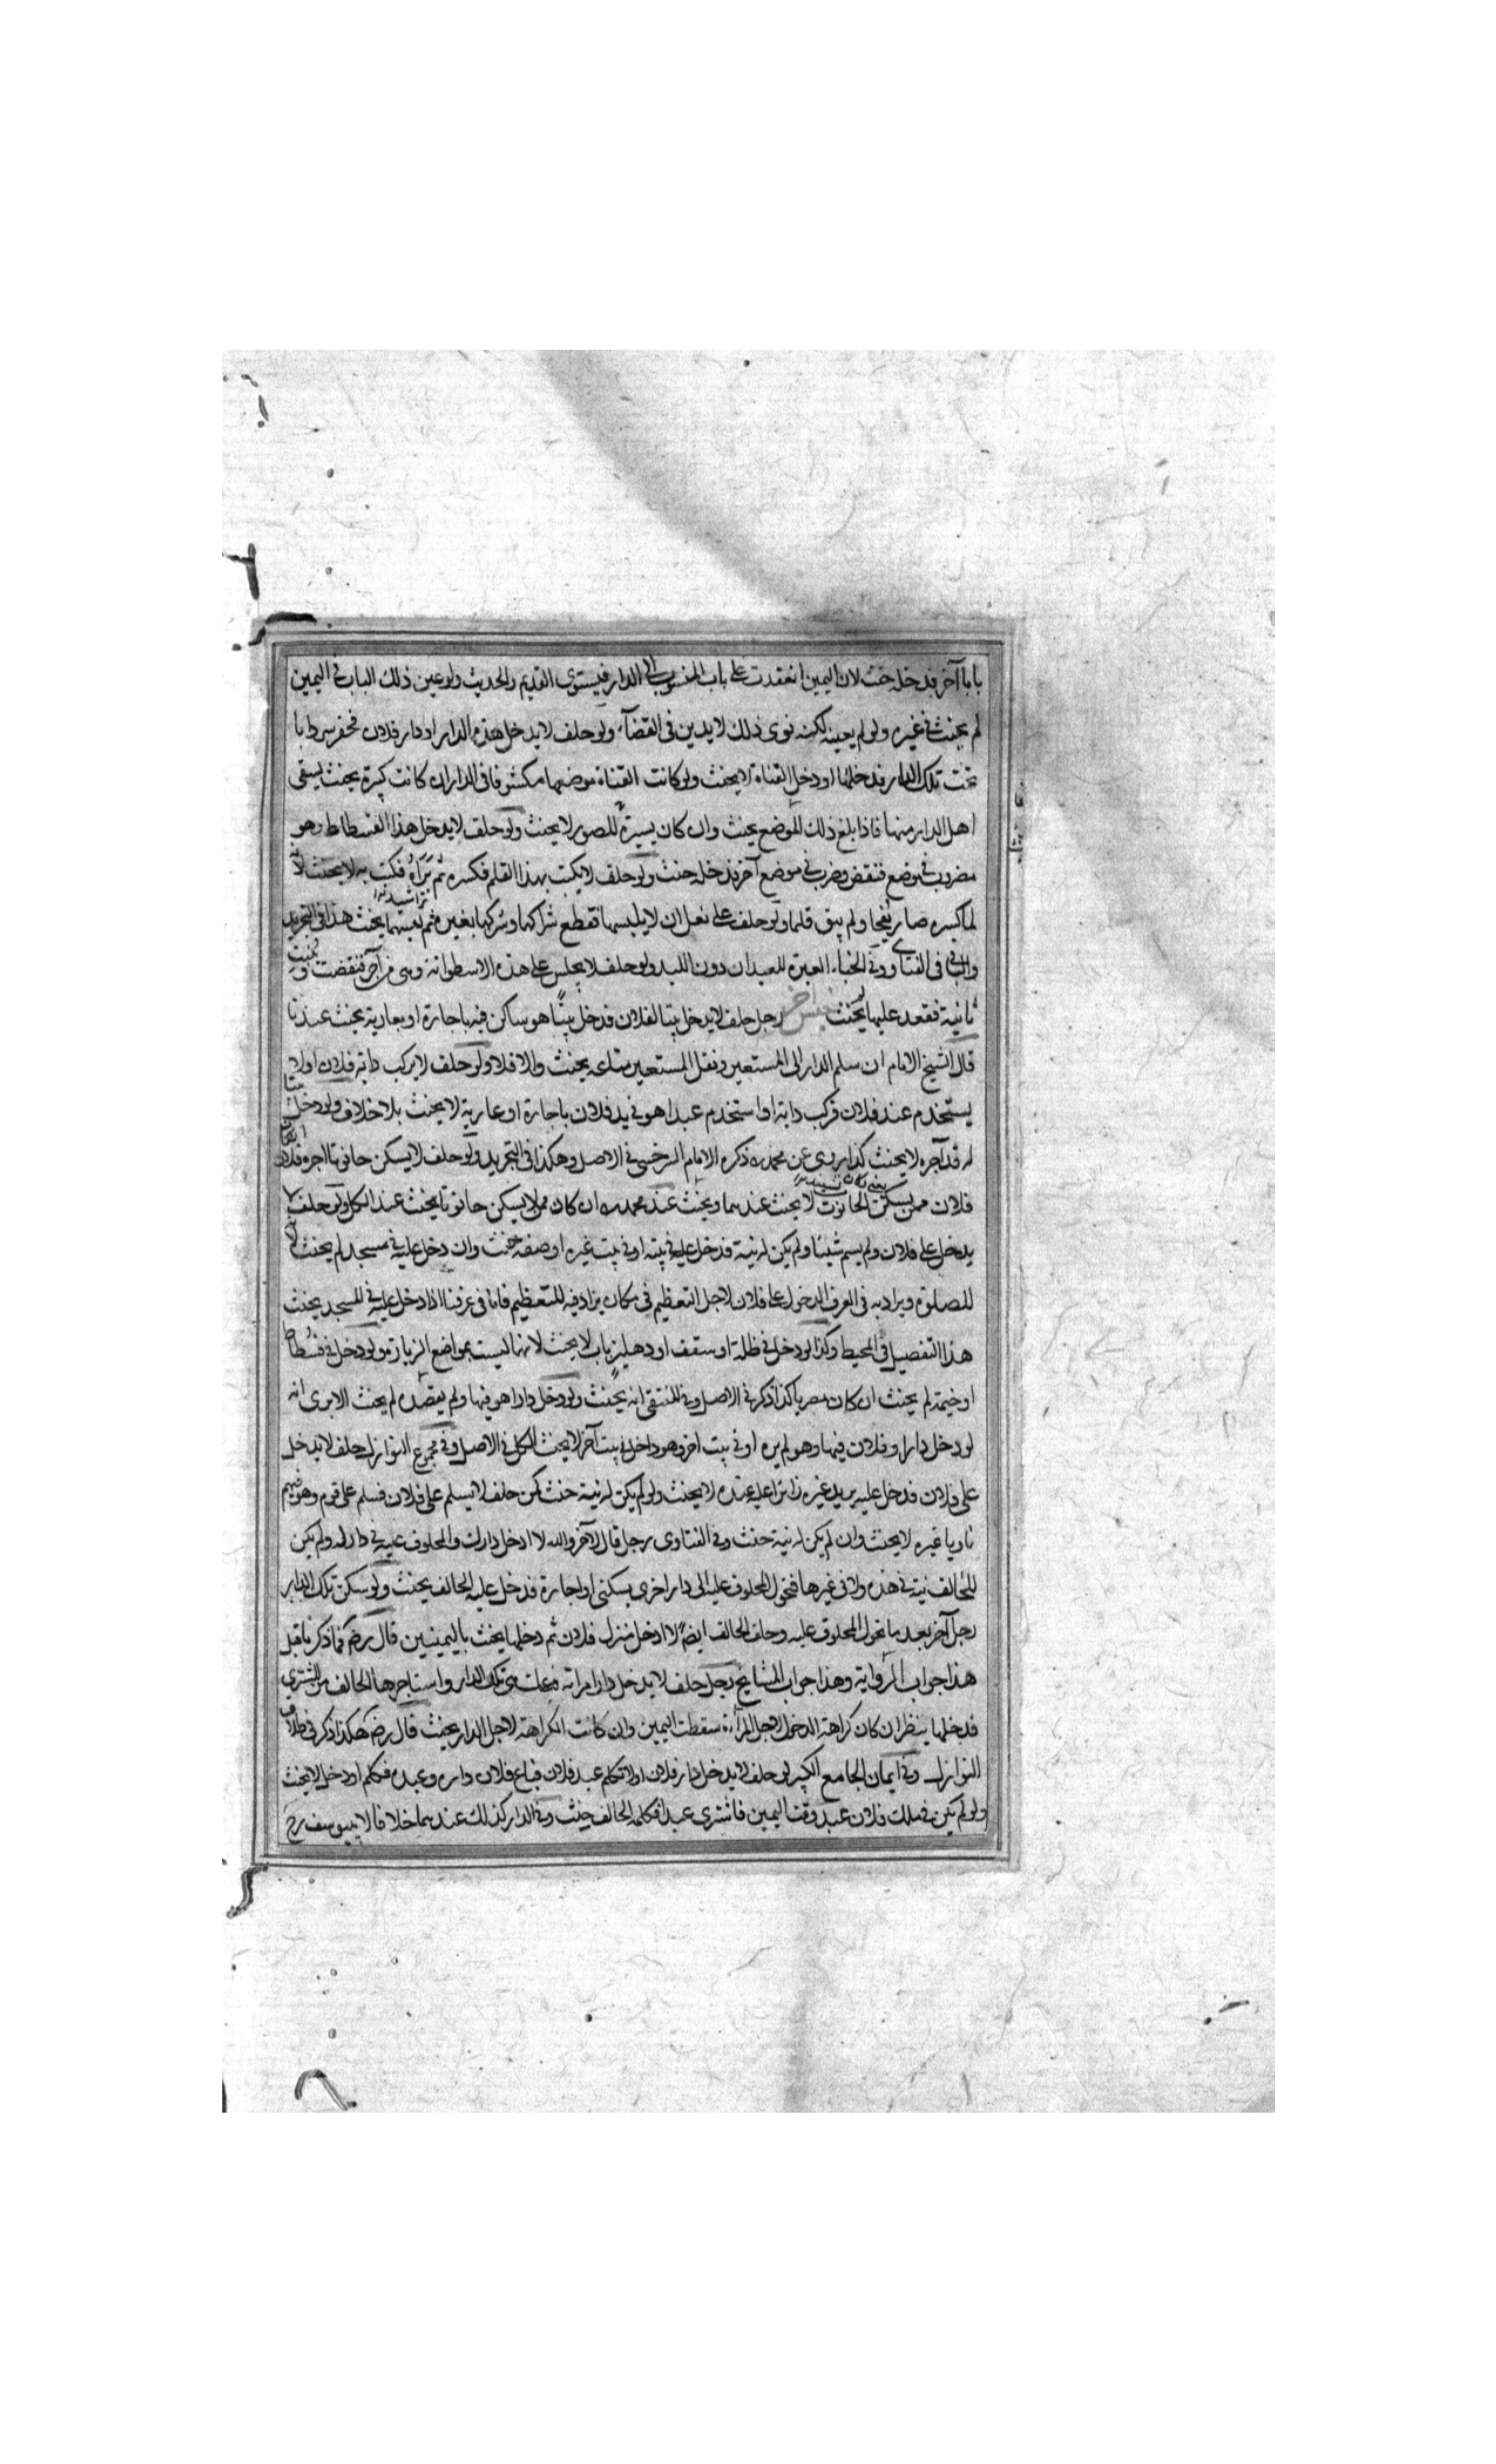 بابا آخر فدخله حنث لان اليمين انعقدت على باب المنسوب الى الدار فيستوى القديم والحديث ولو عين ذلك الباب فى اليمين
لم يحنث فى غيره ولو لم يعينه لكنه نوى ذلك لا يدين فى القضآء ولو حلف لا يدخل هذه الدار او دار فلان فحفر سردابا
تحت تلك الدار فدخلها او دخل القناة لا يحنث ولو كانت القناة موضعها مكشوفا فى الدار ان كانت كبيرة يحنث يستقى
اهل الدار منها فاذا بلغ ذلك الموضع يحنث وان كان يسيرة للضوء لا يحنث ولو حلف لا يدخل هذا الفسطاط وهو
مضروب فى موضع فنقض وضرب فى موضع آخر فدخله حنث ولو حلف لا يكتب بهذا القلم فكسره ثم براه فكتب به لا يحنث لان
لما كسره صار ولم يبق قلما ولو حلف على نعل ان لا يلبسها فقطع شراكها وشركها بغيره ثم لبسها يحنث هذا فى التجريد
والباقى فى الفتاوى وفى الخباء العبرة للعيدان دون اللبد ولو حلف لا يجلس على هذه الاسطوانة وهى من آجر فنقضت وبنيت
ثانية فقعد عليها لم يحنث جنس آخر رجل حلف لا يدخل بيتا لفلان فدخل بيتا هو ساكن فيه باجارة او بعارية يحنث عندنا
قال الشيخ الامام ان سلم الدار الى المستعير ونقل المستعير متاعه يحنث والا فلا ولو حلف لا يركب دابة فلان او لا
يستخدم عبد فلان فركب دابة او استخدم عبدا هو فى يد فلان باجارة او عارية لا يحنث بلا خلاف ولو دخل بيتا
له قد آجره لا يحنث كذا روى عن محمد ذكره الامام السرخسى فى الاصل وهكذا فى التجريد ولو حلف لا يسكن حانوتا اجره فلان
فلان ممن يسكن الحانوت لا يحنث عندهما ويحنث عند محمد ان كان ممن لا يسكن حانوتا يحنث عند الكل ولو حلف لا
يدخل على فلان ولم يسم شيئا ولم يكن له نية فدخل عليه فى بيته او فى بيت غيره او صفة حنث وان دخل عليه فى مسجد لم يحنث لانه
للصلوة ويراد به فى العرف الدخول على فلان لاجل التعظيم فى مكان يزاد فيه للتعظيم فاما فى عرفنا اذا دخل عليه فى المسجد يحنث
هذا التفصيل فى المحيط وكذا لو دخل فى ظلة او سقف او دهليز باب لا يحنث لانها ليست بمواضع الزيارة ولو دخل فى فسطاط
او خيمة لم يحنث ان كان مصريا كذا ذكر فى الاصل وفى المنتقى انه يحنث ولو دخل دارا هو فيها ولم يقصده لم يحنث الا يرى انه
لو دخل دارا وفلان فيها وهو لم يره او فى بيت اخر وهو داخل فى بيت آخر لا يحنث الكل فى الاصل وفى مجموع النوازل حلف لا يدخل
على فلان فدخل عليه يريد غيره زائرا عليه عنده لا يحنث ولو لم يكن له نية حنث كمن حلف لا يسلم على فلان فسلم على قوم وهو فيهم
ناويا غيره لا يحنث وان لم يكن له نية حنث وفى الفتاوى رجل قال لآخر والله لا ادخل دارك والمحلوف عليه فى دار له ولم يكن
للحالف نية فى هذه ولا فى غيرها فتحول المحلوف عليه الى دار اخرى بسكنى او اجارة فدخل عليه الحالف يحنث ولو سكن تلك الدار
رجل آخر بعد ما تحول المحلوف عليه وحلف الحالف ايضا لا ادخل منزل فلان ثم دخلها يحنث باليمينين قال رضه فما ذكرنا قبل
هذا جواب الرواية وهذا جواب المشايخ رجل حلف لا يدخل دار امراته فباعت هى تلك الدار واستاجرها الحالف من المشترى
فدخلها ينظر ان كان كراهة الدخول لاجل المرأة سقطت اليمين وان كانت الكراهة لاجل الدار يحنث قال رضه هكذا ذكر فى طلاق
النوازل وفى ايمان الجامع الكبير لو حلف لا يدخل دار فلان او لا يكلم عبد فلان فباع فلان داره وعبده فكلم او دخل لا يحنث
ولو لم يكن فى ملك فلان عبد وقت اليمين فاشترى عبدا فكلمه الحالف حنث وفى الدار كذلك عندهما خلافا لابى يوسف رح